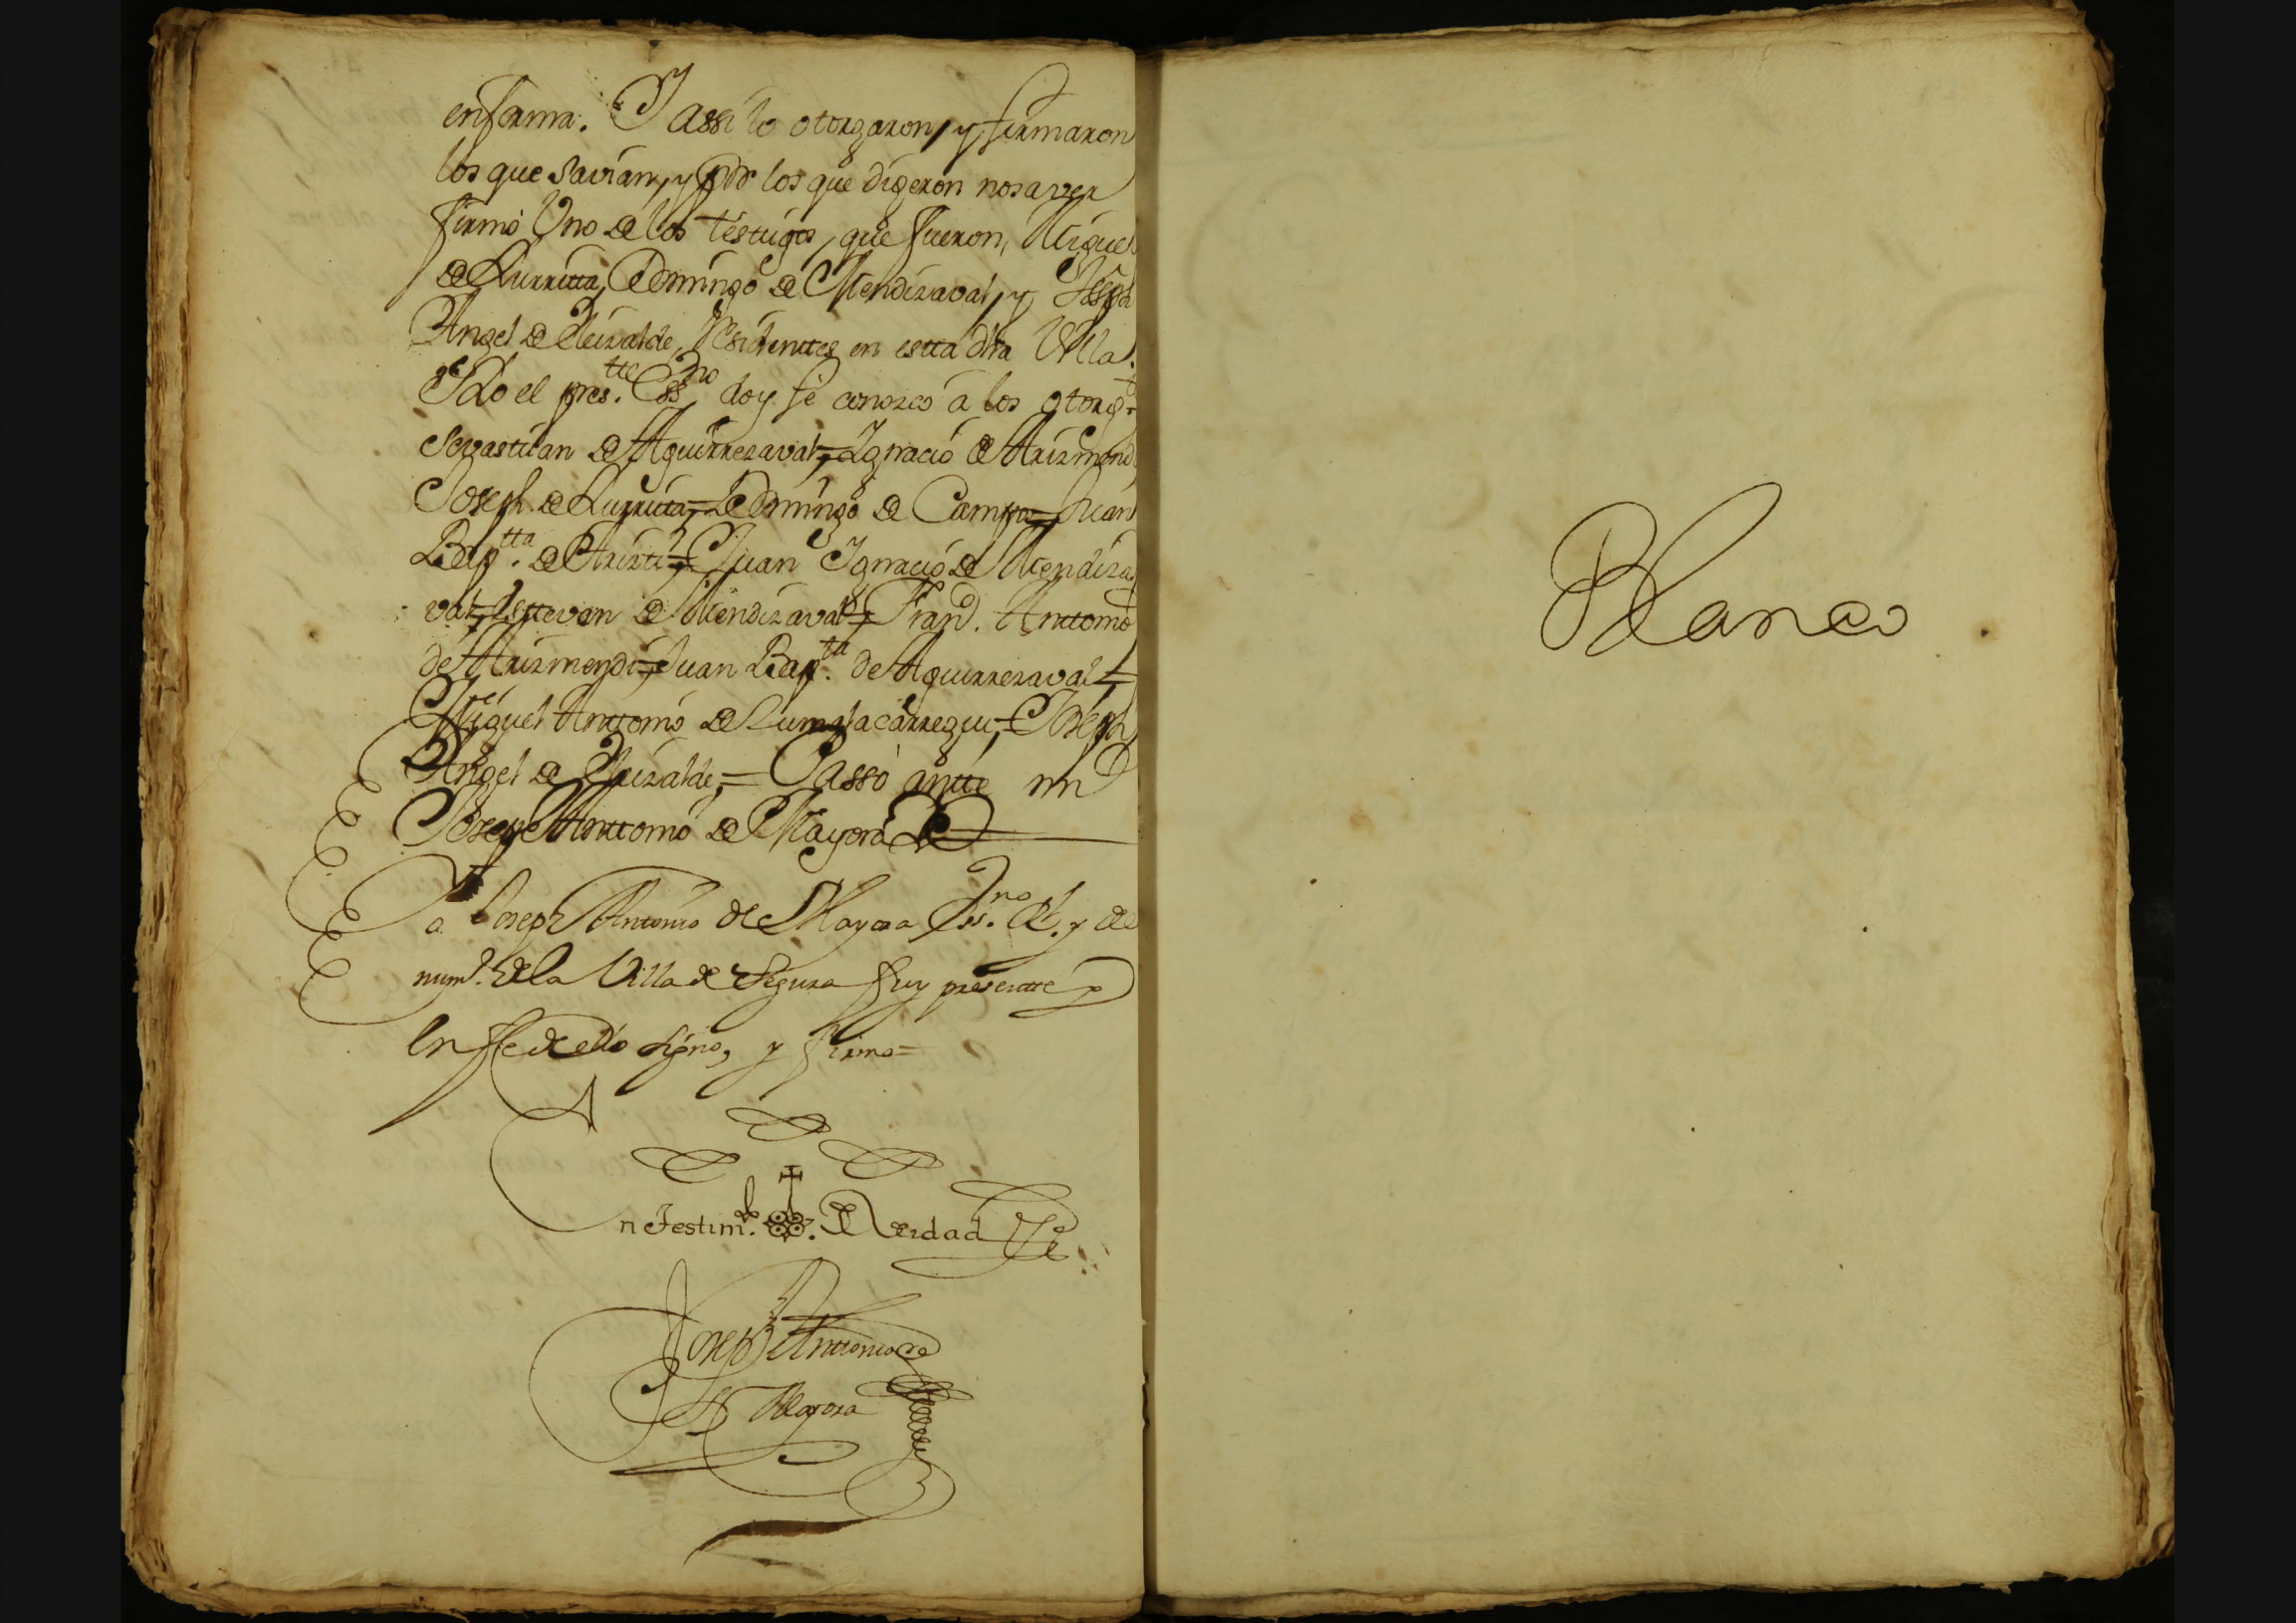 en forma. Y assi lo otorgaron, y firmaron
los que savian, y por los que digeron no saver
firmó Uno de los testigos, que fueron, Miguel
de Lurritta, Domingo de Mendizaval, y Joseph
Angel de Elizalde, Residentes en estta dha Villa.
E Yo el pres.tte Ess.no doy fe conozco á los otorg.tes
Sevastian de Aguirrezaval = Ignacio de Arizmendi
Joseph de Lurritta = Domingo de Campa = Juan
Bap.tta de Arizti = Juan Ignacio de Mendiza
val = Esttevan de Mendizaval = Fran.co Anttonio
de Arizmendi = Juan Bap.ta de Aguirrezaval =
Miguel Anttonio de Zumalacarregui = Joseph
Angel de Elizalde = Passó antte mi
Joseph Anttonio de Mayora
Yo Joseph Antonio de Mayora Ess.no R.l y del
num.o de la Villa de Segura fuy presentte y
en fe de ello signo, y firmo =
En Testim.o de Verdad
Joseph Anttonio de
Mayora
Blanco